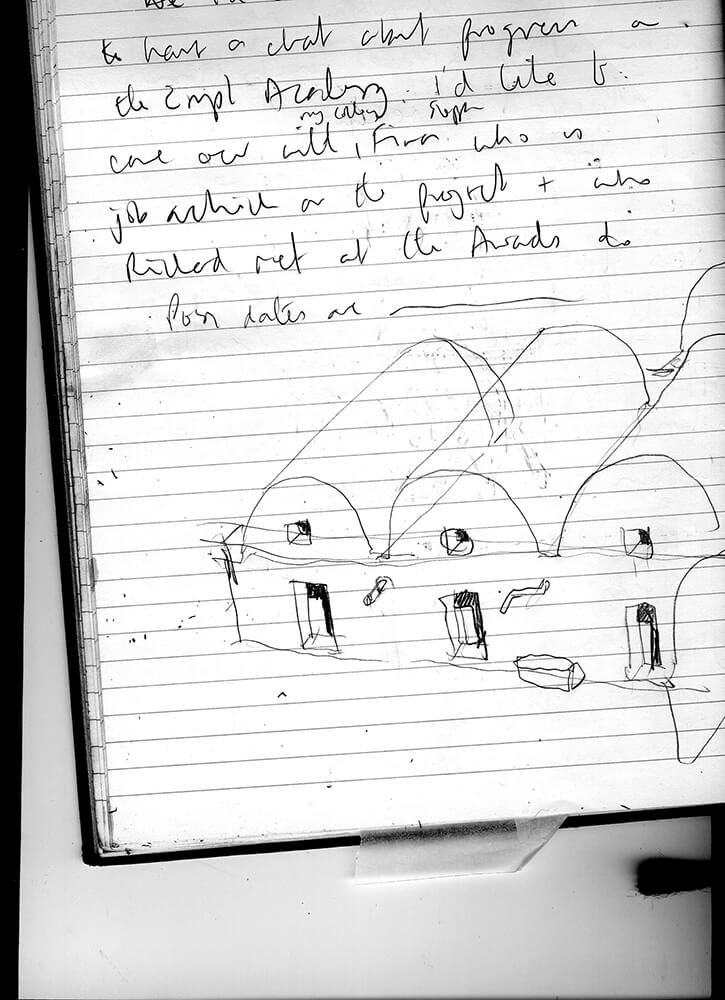 to have a chat about progress on
the Academy. I'd like to
my colleague
come over with, who is
job architect on the project + who
Richard met at the Awards do
Poss dates are